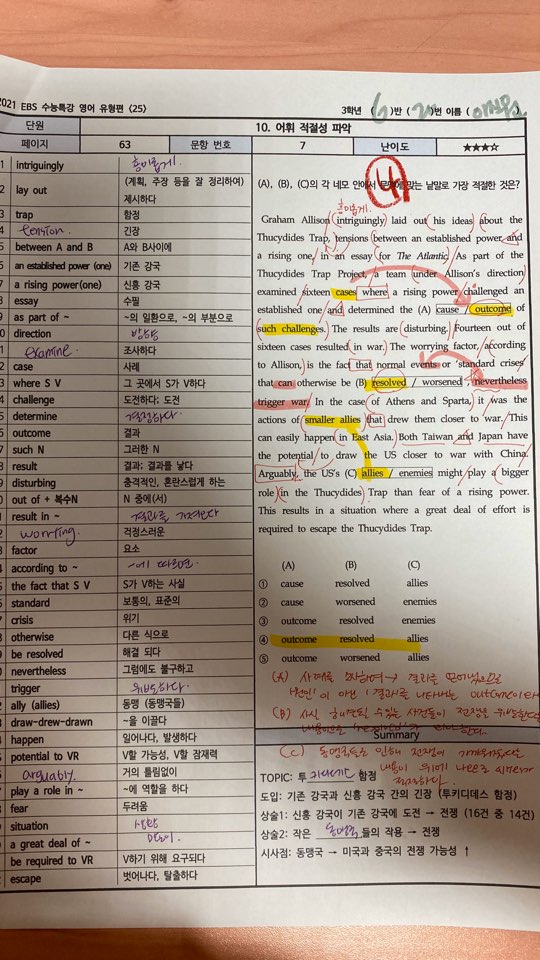 2021 EBS 수능특강 영어 유형편 <25>
3학년 ( 6 )반 ( )번 이름 (
단원
10. 어휘 적절성 파악
페이지 63 문항 번호 7 난이도 ★★★☆
1 intriguingly 흥미롭게.
2 lay out (계획, 주장 등을 잘 정리하여) 제시하다
3 trap 함정
4 tension. 긴장
5 between A and B A와 B사이에
6 an established power (one) 기존 강국
7 a rising power(one) 신흥 강국
8 essay 수필
9 as part of ~ ~의 일환으로, ~의 부분으로
0 direction 방향
1 examine. 조사하다
2 case 사례
3 where S V 그 곳에서 S가 V하다
4 challenge 도전하다; 도전
5 determine 결정하다.
6 outcome 결과
7 such N 그러한 N
8 result 결과; 결과를 낳다
9 disturbing 충격적인, 혼란스럽게 하는
0 out of + 복수N N 중에(서)
1 result in ~ 결과를 가져오다
2 worrting. 걱정스러운
3 factor 요소
4 according to ~ ~에 따르면.
5 the fact that S V S가 V하는 사실
6 standard 보통의, 표준의
7 crisis 위기
8 otherwise 다른 식으로
9 be resolved 해결 되다
0 nevertheless 그럼에도 불구하고
1 trigger 유발하다.
2 ally (allies) 동맹 (동맹국들)
3 draw-drew-drawn ~을 이끌다
4 happen 일어나다, 발생하다
5 potential to VR V할 가능성, V할 잠재력
6 arguably. 거의 틀림없이
7 play a role in ~ ~에 역할을 하다
8 fear 두려움
9 situation 상황
0 a great deal of ~ 많은.
be required to VR V하기 위해 요구되다
escape 벗어나다, 탈출하다
④
(A), (B), (C)의 각 네모 안에서 문맥에 맞는 낱말로 가장 적절한 것은?
흥미롭게.
Graham Allison intriguingly laid out his ideas about the
Thucydides Trap, tensions between an established power and
a rising one, in an essay for The Atlantic. As part of the
Thucydides Trap Project, a team under Allison's direction
examined sixteen cases where a rising power challenged an
established one and determined the (A) cause / outcome of
such challenges. The results are disturbing. Fourteen out of
sixteen cases resulted in war. The worrying factor, according
to Allison, is the fact that normal events or 'standard crises'
that can otherwise be (B) resolved / worsened, nevertheless
trigger war. In the case of Athens and Sparta, it was the
actions of smaller allies that drew them closer to war. This
can easily happen in East Asia. Both Taiwan and Japan have
the potential to draw the US closer to war with China.
Arguably, the US's (C) allies / enemies might play a bigger
role in the Thucydides Trap than fear of a rising power.
This results in a situation where a great deal of effort is
required to escape the Thucydides Trap.
(A) (B) (C)
① cause resolved allies
② cause worsened enemies
③ outcome resolved enemies
④ outcome resolved allies
⑤ outcome worsened allies
(A) 사례를 조사하여 → 결과를
'원인'이 아닌 '결과'를 나타내는 outcome이
(B) 사실 해결될 수 있는 사건들이 전쟁을 유발한다
Summary
(C) 동맹국으로 인해 전쟁이
내용이 뒤에 나오므로
적절하다.
TOPIC: 투키디데스 함정
도입: 기존 강국과 신흥 강국 간의 긴장 (투키디데스 함정)
상술1: 신흥 강국이 기존 강국에 도전 → 전쟁 (16건 중 14건)
상술2: 작은 동맹국들의 작용 → 전쟁
시사점: 동맹국 → 미국과 중국의 전쟁 가능성 ↑